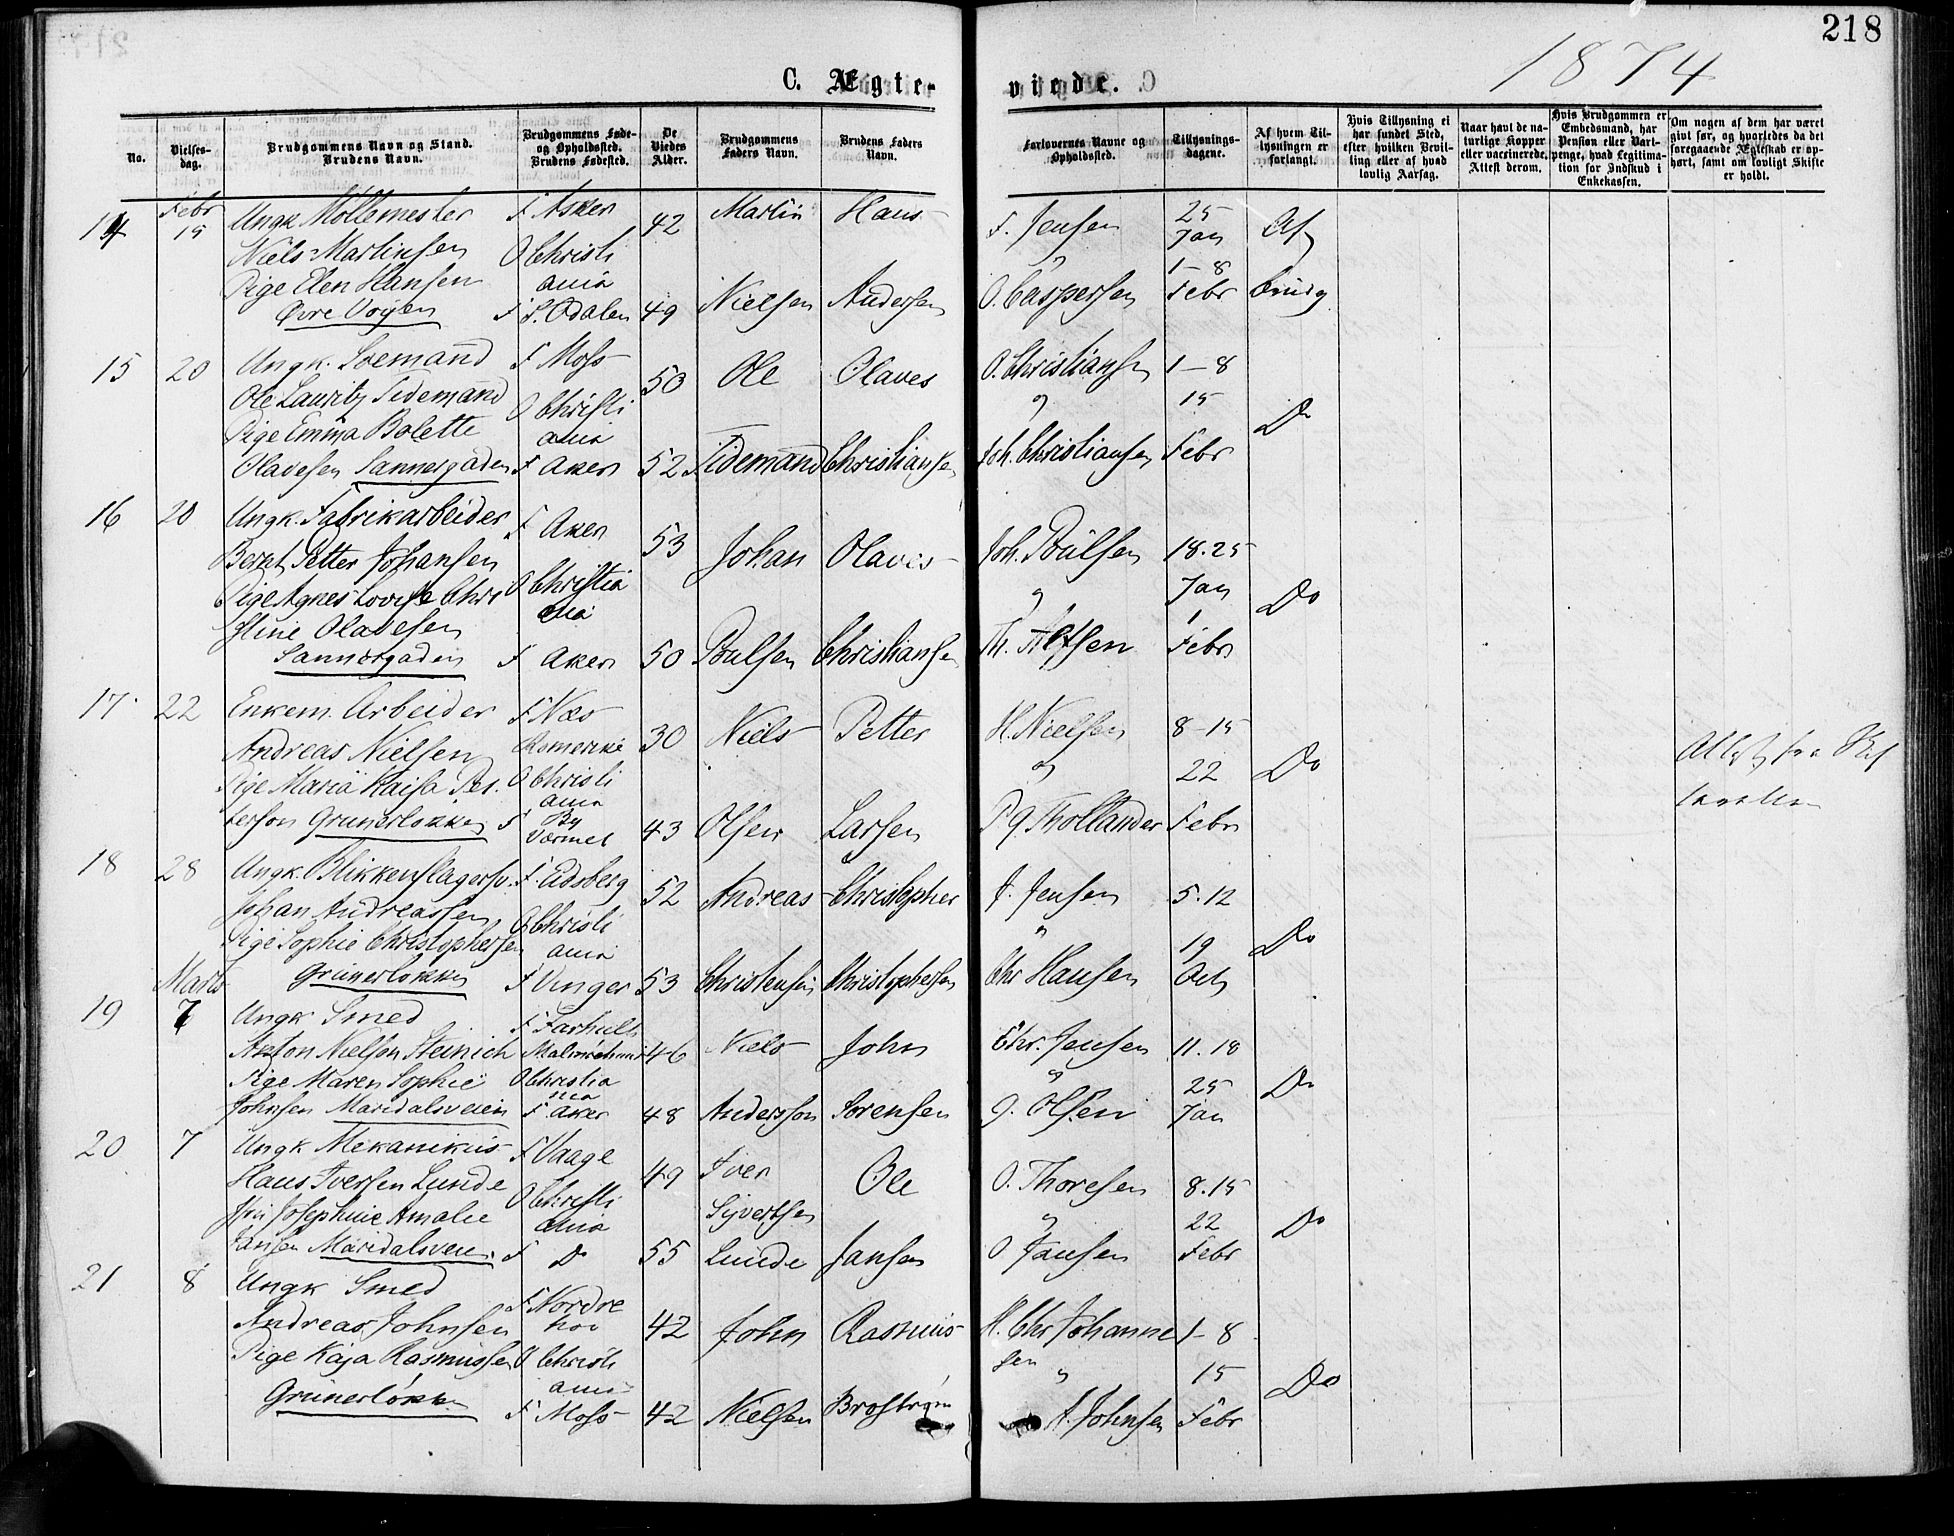 218
1874
C. Ægte-
viede.
No.
Vielses-
dag.
Brudgommens Navn og Stand.
Brudens Navn.
Brudgommens Føde-
og Opholdssted.
Brudens Fødested.
De
Viedes
Alder.
Brudgommens
Faders Navn.
Brudens Faders
Navn.
Forlovernes Navne og
Opholdssted.
Tillysnings-
dagene.
Af hvem Til-
lysningen er
forlangt.
Hvis Tillysning ei
har fundet Sted,
efter hvilken Bevil-
ling eller af hvad
lovlig Aarsag.
Naar havt de na-
turlige Kopper
eller vaccinerede.
Attest derom.
Hvis Brudgommen er
Embedsmand, har
Pension eller Vart-
penge, hvad Legitima-
tion for Indskud i
Enkekassen.
Om nogen af dem har været
givt før, og hvorledes da det
foregaaende Ægteskab er op-
hørt, samt om lovligt Skifte
er holdt.
14 Febr 15
Ungk Möllemester
Niels Martinsen
Pige Elen Hansen
Øvre Voyen
F Asker
O Christi
ania
F S. Odalen
42
49
Martin
Nielsen
Hans
Andersen
F. Jensen
"
O. Caspersen
25
Jan
1-8
Febr
Af
Brudg
15 20
Ungk. Soemand
Ole Lauritz Tidemand
Pige Emma Bolette
Olavesen Sannergaden
F Moss
O Christi
ania
F Aker
50
52
Ole
Tidemand
Olaves
Christiansen
O. Christiansen
"
Joh. Christiansen
1-8
15
Febr
Do
16 20
Ungk. Fabrikarbeider
Bernt Petter Johansen
Pige Agnes Lovise Chri
stine Olavesen
Sannergaden
F Aker
O Christia
nia
F Aker
53
50
Johan
Poulsen
Olaves
Christiansen
Joh. Poulsen
"
Th.
18. 25
Jan
1
Febr
Do
17 22
Enkem. Arbeider
Andreas Nielsen
Pige Maria Kaisa Pet.
terson Grunerløkken
F Næs
Romerike
O Christi
ania
F By
Värmel
30
43
Niels
Olsen
Petter
Larsen
H. Nielsen
"
P G Thollander
8-15
22
Febr
Do
Attest fra Skif
teretten
18 28
Ungk. Blikkenslagersv.
Johan Andreassen
Pige Sophie Christophersen
Grünerløkken
F. Edsberg
O Christi
ania
F Vinger
52
53
Andreas
Christensen
Christopher
Christophersen
J. Jensen
"
Chr Hansen
5. 12
19
Oct
Do
Marts
19 7
Ungk Smed
Anton Nielson Steinich
Pige Maren Sophie
Johnsen Maridalsveien
F Farhult
O Christia
nia
F Aker
46
48
Niels
Andersson
John
Sorensen
Chr. Jensen
"
G. Olsen
11. 18
25
Jan
Do
20 7
Ungk Mekanikus
Hans Iversen Lunde
Josephine Amalie
Jansen Maridalsveien
F Vaage
O Christi
ania
F Do
49
55
Iver
Syvertsen
Lunde
Ole
Jansen
O. Thoresen
"
O Jansen
8. 15
22
Febr
Do
21 8
Ungk Smed
Andreas Johnsen
Pige Kaja Rasmussen
Grünerløkken
F Nordre
hov
O Christi
ania
F Moss
42
42
John
Nielsen
Rasmus
Brostrøm
H. Chr Johanne
sen
"
A. Johnsen
1-8
15
Febr
Do